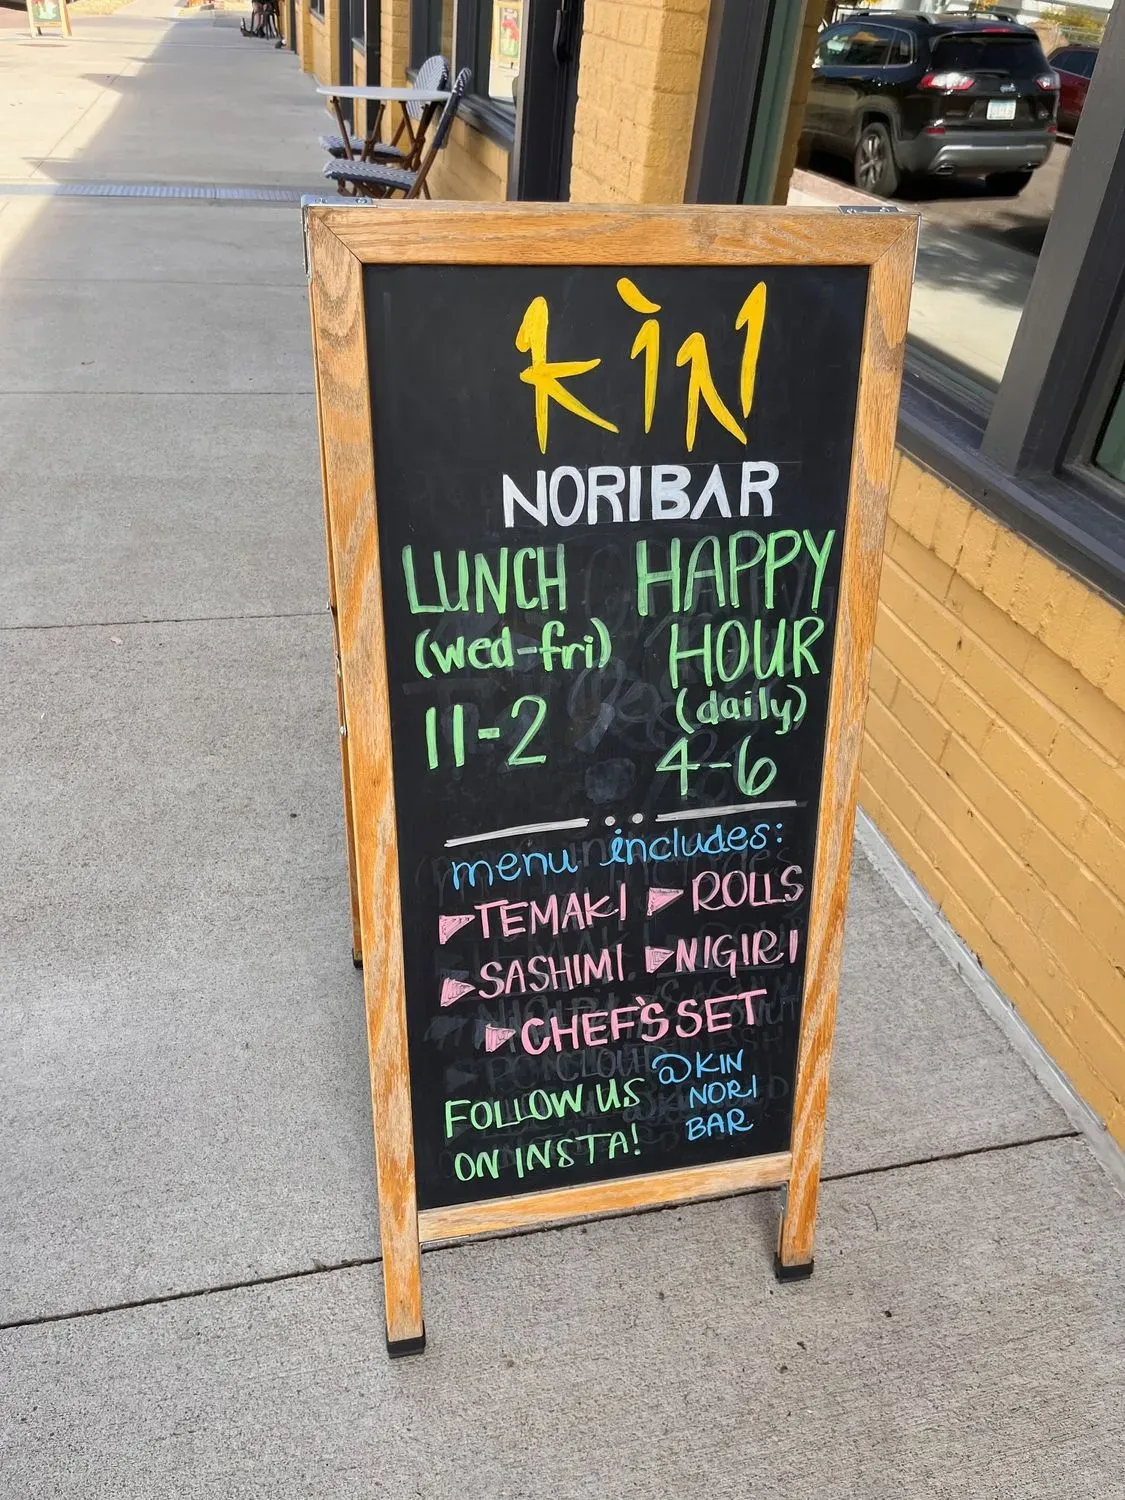 kìN
NORIBAR
LUNCH
(wed-fri)
11-2
HAPPY
HOUR
(daily)
4-6
menu includes:
TEMAKI ROLLS
SASHIMI NIGIRI
CHEF'S SET
FOLLOW US
ON INSTA!
@KIN
NORI
BAR